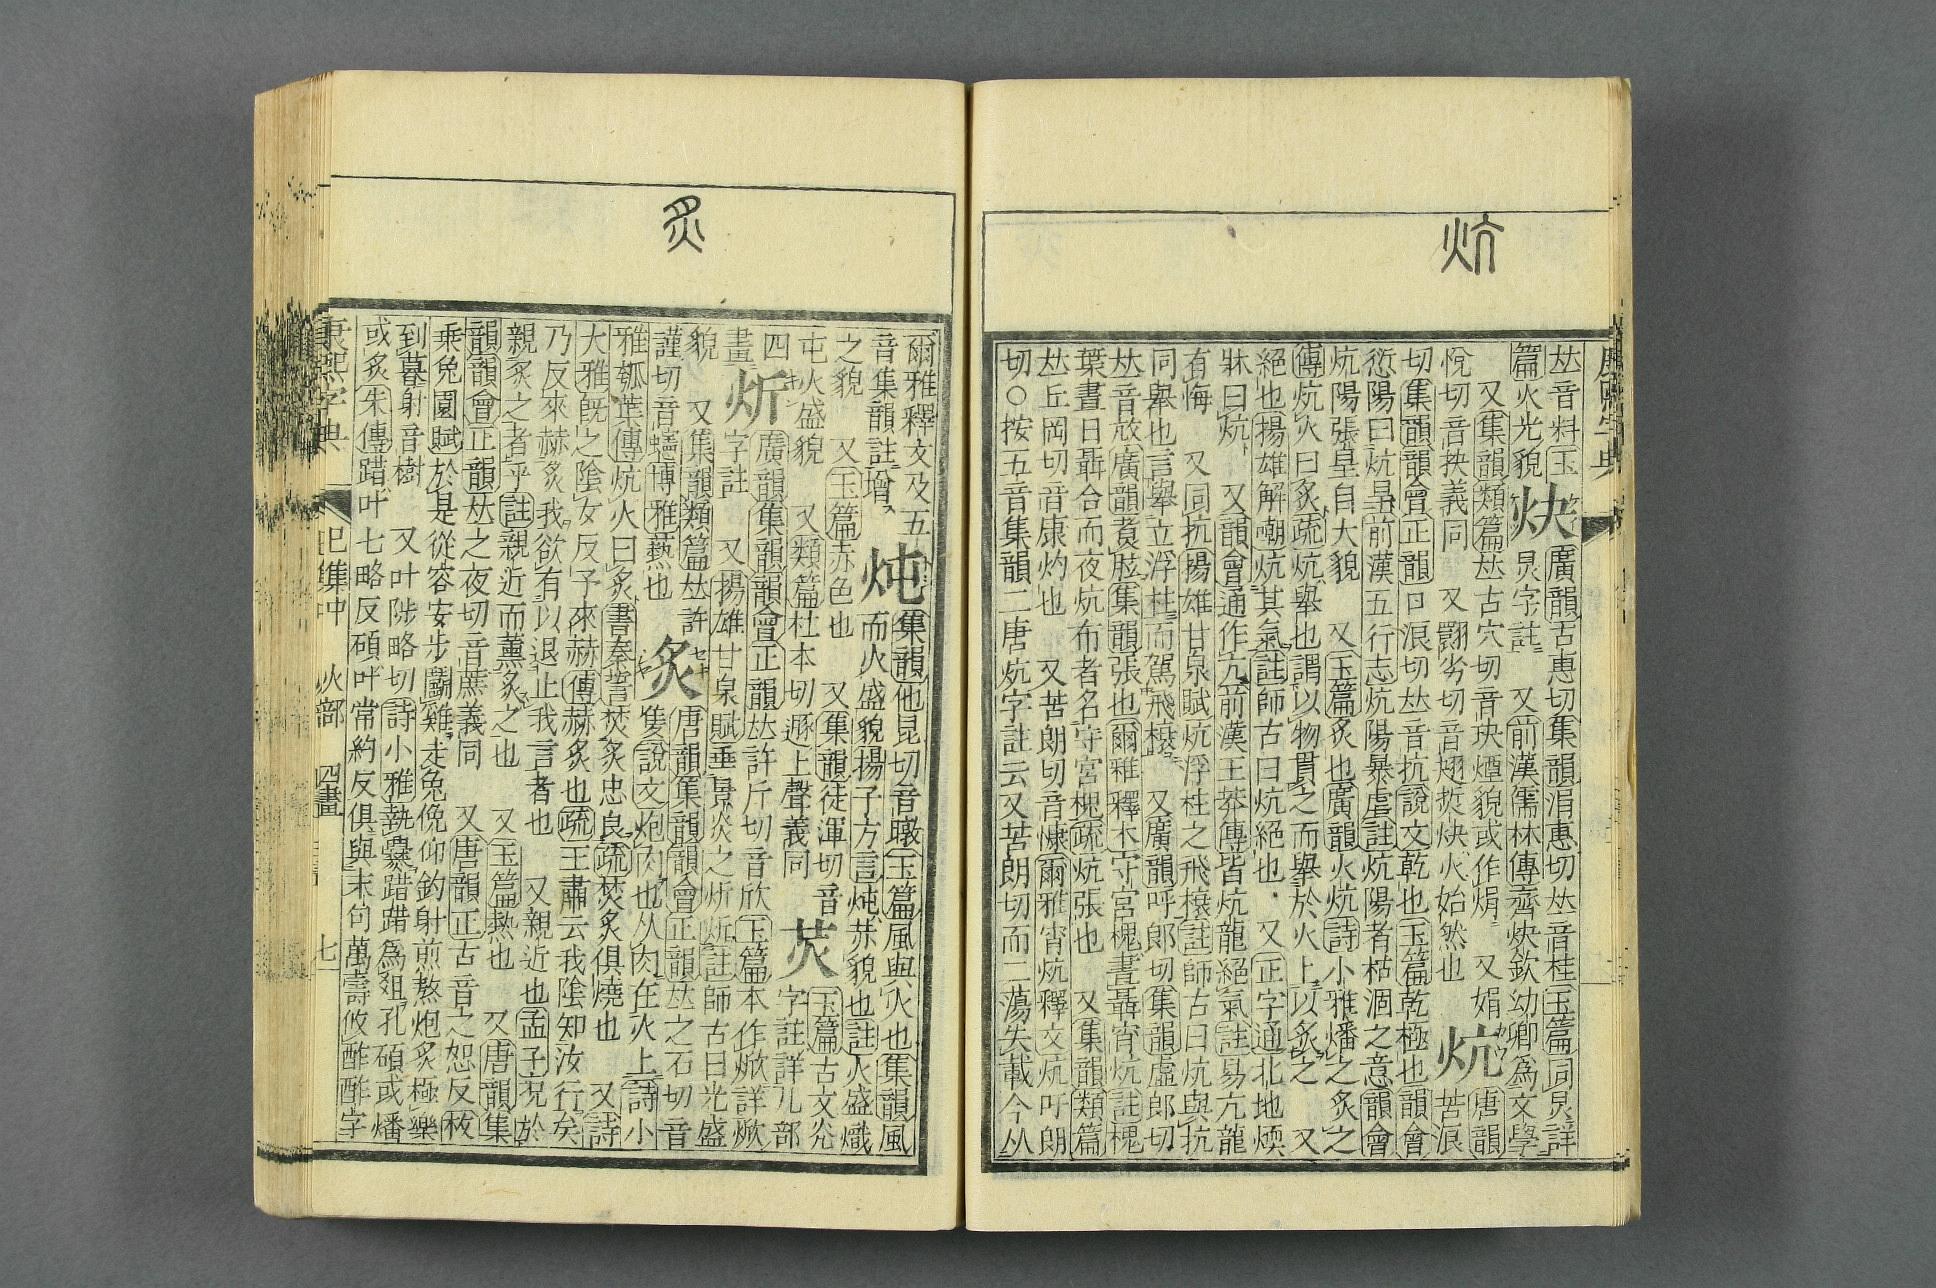 炕
康熙字典
𠀤音料玉
篇火光貌
炔
廣韻古惠切集韻涓惠切𠀤音桂玉篇同炅詳
炅字註　又前漢儒林傳齊炔欽幼卿為文學
又集韻類篇𠀤古穴切音玦煙貌或作焆　又娟
悅切音抉義同　又翾劣切音炔火始然也
炕
唐韻
苦浪
切集韻韻會正韻口浪切𠀤音抗說文乾也玉篇乾極也韻會
愆陽曰炕旱前漢五行志炕陽暴虐註炕陽者枯涸之意韻會
炕陽張皇自大貌　又玉篇炙也廣韻火炕詩小雅燔之炙之
傳炕火曰炙疏炕舉也謂以物貫之而舉於火上以炙之　又
絕也揚雄解嘲炕其氣註師古曰炕絕也　又正字通北地煗
牀曰炕　又韻會通作亢前漢王莽傳皆炕龍絕氣註易亢龍
有悔　又同抗揚雄甘泉賦炕浮柱之飛榱註師古曰炕與抗
同舉也言舉立浮柱而駕飛榱　又廣韻呼郎切集韻虛郎切
𠀤音㰠廣韻煑胘集韻張也爾雅釋木守宮槐晝聶宵炕註槐
葉晝日聶合而夜炕布者名守宮槐疏炕張也　又集韻類篇
𠀤丘岡切音康灼也　又苦朗切音慷爾雅宵炕釋文炕吁朗
切○按五音集韻二唐炕字註云又苦朗切而二蕩失載今从
炙
爾雅釋文及五
音集韻註增
炖
集韻他昆切音暾玉篇風與火也集韻風
而火盛貌揚子方言炖㶷貌也註火盛熾
之貌　又玉篇赤色也　又集韻徒渾切音
屯火盛貌　又類篇杜本切遯上聲義同
炗
玉篇古文光
字註詳儿部
四
畫
炘
廣韻集韻韻會正韻𠀤許斤切音欣玉篇本作焮詳焮
字註　又揚雄甘泉賦垂景炎之炘炘註師古曰光盛
貌　又集韻類篇𠀤許
謹切音蠵博雅爇也
炙
唐韻集韻韻會正韻𠀤之石切音
隻說文炮肉也从肉在火上詩小
雅瓠葉傳炕火曰炙書秦誓焚炙忠良疏焚炙俱燒也　又詩
大雅旣之陰女反予來赫傳赫炙也疏王肅云我陰知汝行矣
乃反來赫炙我欲有以退止我言者也　又親近也孟子況於
親炙之者乎註親近而薰炙之也　又玉篇熱也　又唐韻集
韻韻會正韻𠀤之夜切音蔗義同　又唐韻正古音之恕反枚
乘兔園賦於是從容安步鬬雞走兔俛仰釣射煎熬炮炙極樂
到暮射音樹　又叶陟略切詩小雅執爨踖踖為俎孔碩或燔
或炙朱傳踖叶七略反碩叶常約反俱與末句萬壽攸酢酢字
康熙字典　巳集中　火部　四畫　七